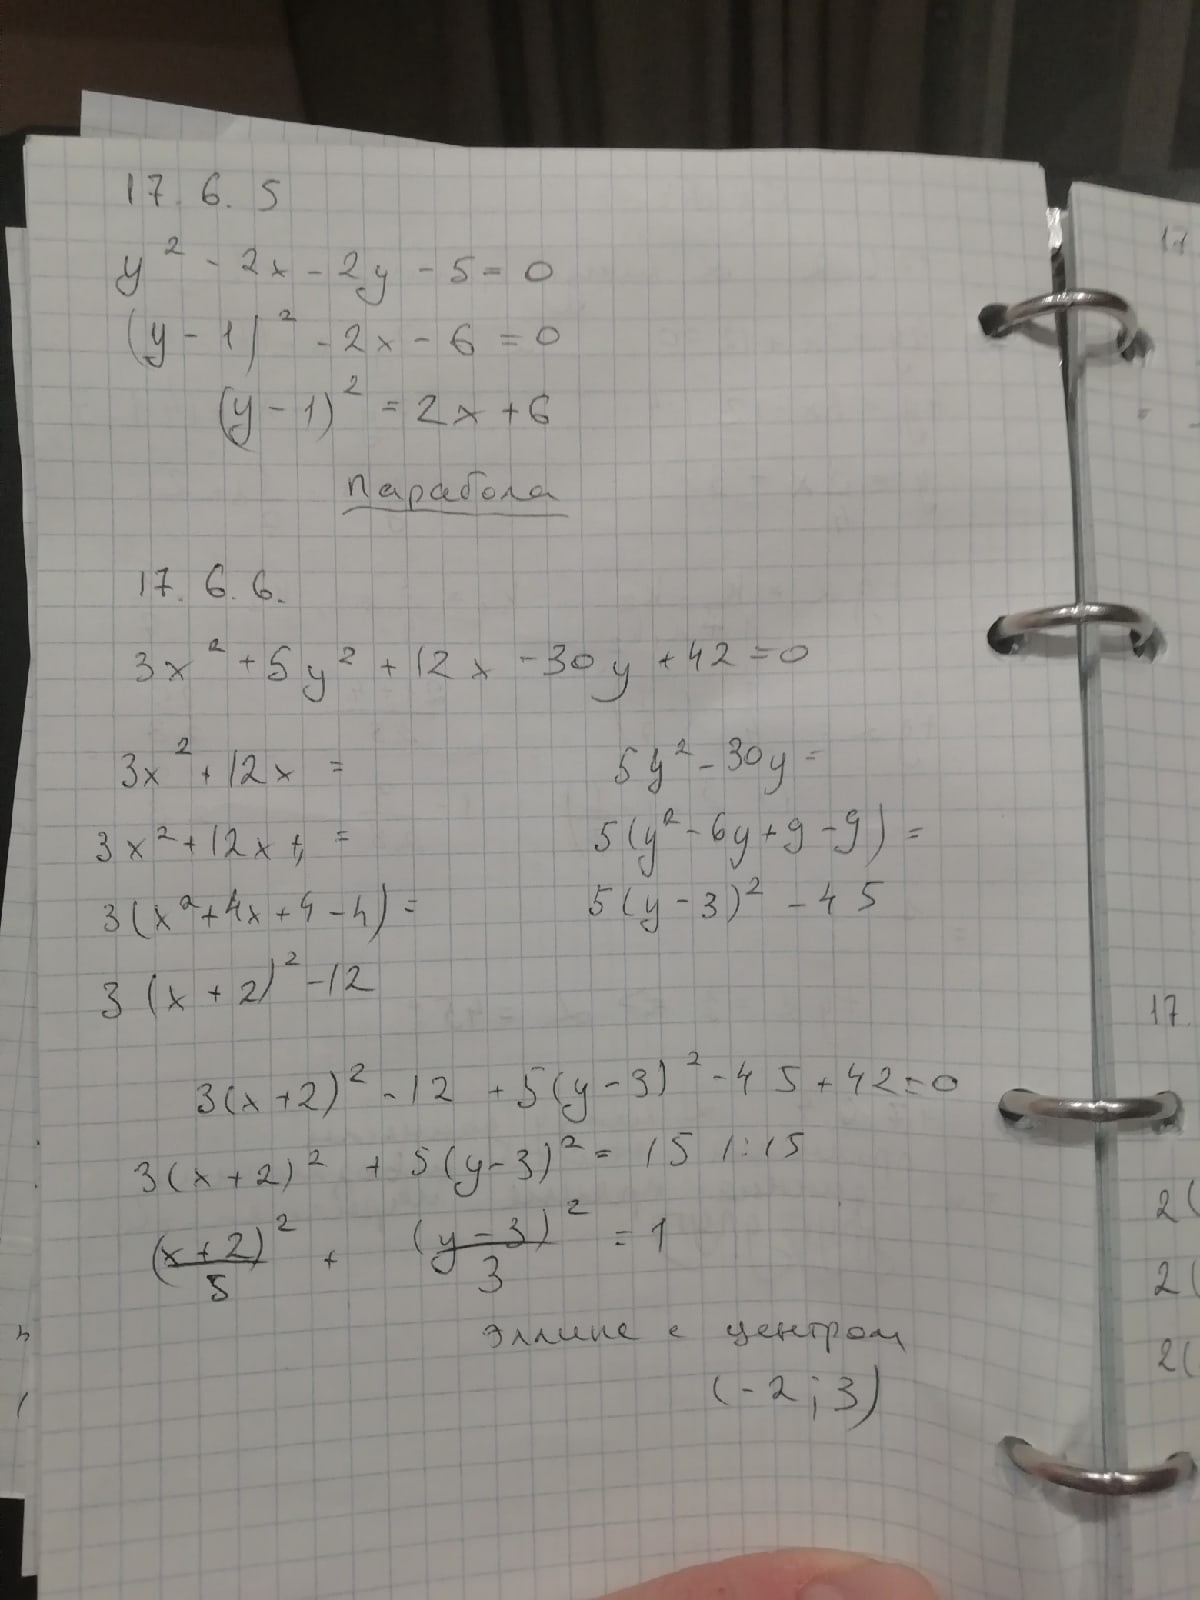 17. 6. 5
y² - 2x - 2y - 5 = 0
(y - 1)² - 2x - 6 = 0
(y - 1)² = 2x + 6
Парабола
17. 6. 6.
3x² + 5y² + 12x - 30y + 42 = 0
3x² + 12x =
5y² - 30y =
3x² + 12x + =
5(y² - 6y + 9 - 9) =
3(x² + 4x + 4 - 4) =
5(y - 3)² - 45
3(x + 2)² - 12
3(x + 2)² - 12 + 5(y - 3)² - 45 + 42 = 0
3(x + 2)² + 5(y - 3)² = 15 | : 15
(x + 2)²/5 + (y - 3)²/3 = 1
Эллипс с центром
(-2; 3)
17
17.
2(
2(
2(